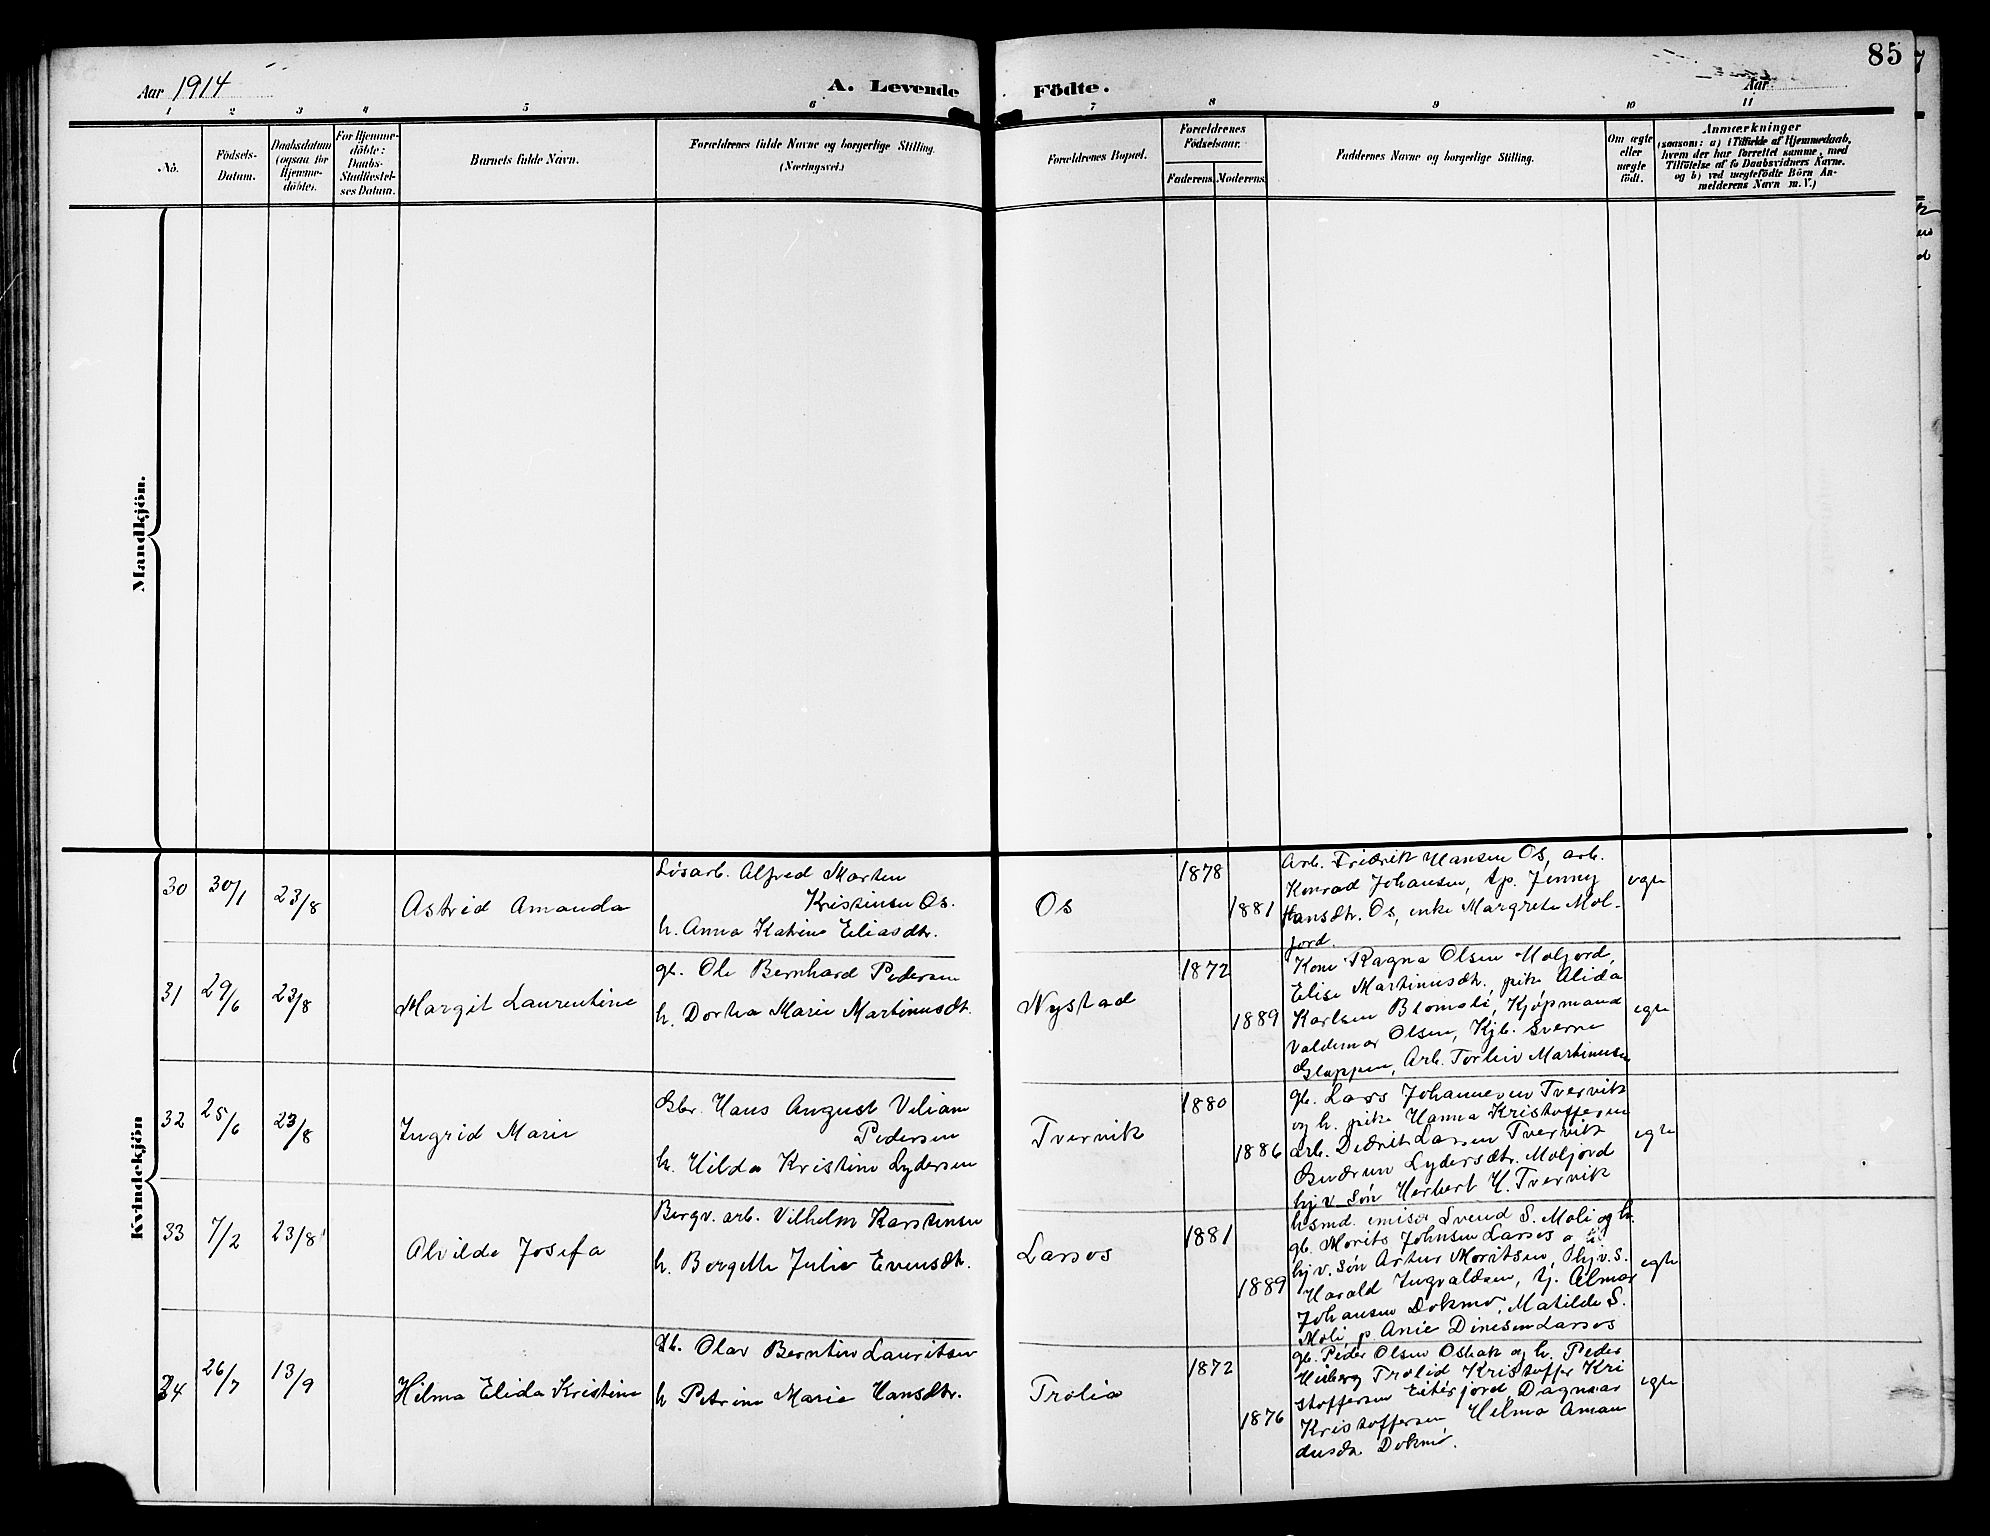 85
Aar 1914
A. Levende
Födte.
Aar
1 2 3 4 5 6 7 8 9 10 11
No.
Födsels-
Datum.
Daabsdatum
(ogsaa for
Hjemme-
döbte).
For Hjemme-
döbte:
Daabs-
Stadfæstel-
ses Datum.
Barnets fulde Navn.
Forældrenes fulde Navne og borgerlige Stilling.
(Næringsvei.)
Forældrenes Bopæl.
Forældrenes
Födselsaar.
Faderens.
Moderens.
Faddernes Navne og borgerlige Stilling.
Om ægte
eller
uægte
födt.
Anmærkninger
(saasom: a) i Tilfælde af Hjemmedaab,
hvem der har forrettet samme, med
Tilföielse af to Daabsvidners Navne.
og b) ved uægtefödte Börn An-
melderens Navn m. V.)
Mandkjön.
Kvindekjön
30
30/1
23/8
Astrid Amanda
Løsarb. Alfred Marten
Kristensen Os.
h. Anna Katrine Eliasdtr.
Os
1878
1881
Arb. Fridrik Hansen Os, arb.
Konrad Johansen, tp. Jenny
Hansdtr. Os, enke Margrete Mol-
jord.
egte
31
29/6
23/8
Margit Laurentine
gb. Ole Bernhard Pedersen
h. Dortea Marie Martinusdt.
Nystad
1872
1889
Kone Ragna Olsen Moljord,
Elise Martinusdt. pike Alida
Karlsen Blomoli, Kjøpmand
Valdemar Olsen, Kjb. Sverre
Gloppen, Arb. Torleiv Martinusen
egte
32
25/6
23/8
Ingrid Marie
Gbr. Hans August Viliam
Pedersen
h. Hilda Kristine Lydersen
Tvervik
1880
1886
gb. Lars Johannesen Tvervik
og h. pike Hanna Kristoffersen
arb. Didrik Larsen Tvervik
Gudrun Lydersdtr. Moljord
hjv. søn Herbert H. Tvervik
egte
33
7/2
23/8
Alvilde Josefa
Bergv. arb. Vilhelm Karstensen
h. Bergette Julie Evensdt.
Larsos
1881
1889
husmd. emisær Svend S. Moli og h.
gb. Morits Johnsen Larsos
hjv. søn Artur Moritsen, hjv. S.
Harald Ingvaldsen, tj. Almar
Johansen Dokmo, Matilde S.
Moli, p. Anie Dinesen Larsos
egte
34
26/7
13/9
Hilma Elida Kristine
Gb. Olav Berntin Lauritsen
h Petrine Marie Hansdtr.
Trolia
1872
1876
gb. Peder Olsen Osbak og h. Peder
Trolid Kristoffer Kri
stoffersen Eiterjord, Dagmar
Kristoffersen Hilma Aman
dusdtr Dokmo.
egte